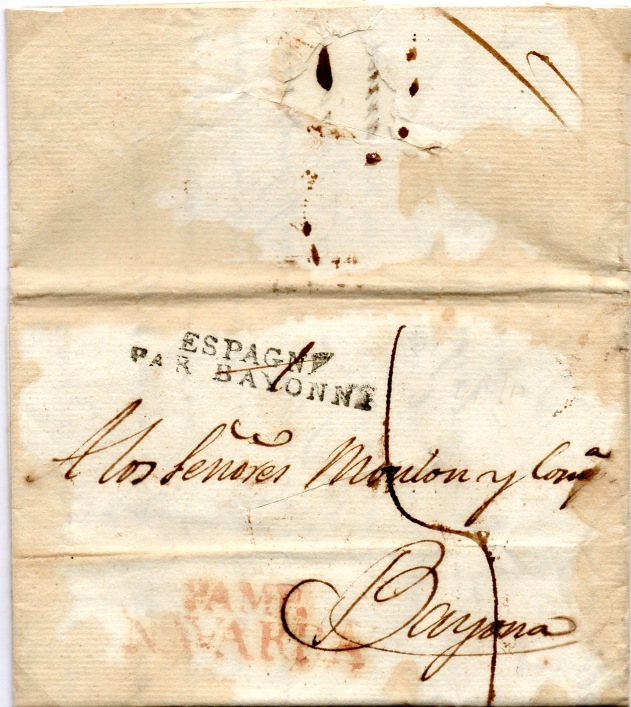 ESPAGNE
PAR BAYONNE
A los Señores Moulon y Comª
Bayona
PAMP.
NAVARRA